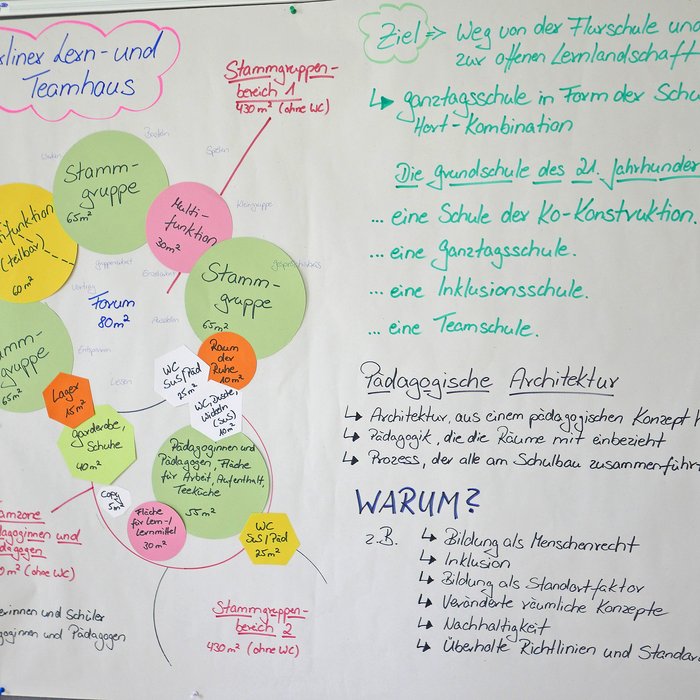 rliner Lern- und
Teamhaus
Stammgruppen-
bereich 1
430 m² (ohne WC)
Basteln
Spielen
Kleingruppe
Stamm-
gruppe
65m²
Multi-
funktion
30m²
tifunktion
(teilbar)
60 m²
Stamm-
gruppe
65 m²
Forum
80 m²
Vortrag
Ausstellen
Entspannen
Lesen
amm-
gruppe
65m²
WC
SuS/Päd
25m²
Raum
der
Ruhe
10m²
WC, Dusche,
Wickeln
(SuS)
10m²
Lager
15m²
Garderobe,
Schuhe
40 m²
Copy
5m²
Fläche
für Lern-/
Lernmittel
30m²
Pädagoginnen und
Pädagogen, Fläche
für Arbeit, Aufenthalt,
Teeküche
55m²
WC
SuS/Päd
25m²
amzone
dagoginnen und
dagogen
0 m² (ohne WC)
Stammgruppen-
bereich 2
430 m² (ohne WC)
erinnen und Schüler
goginnen und Pädagogen
Ziel => Weg von der Flurschule und
zur offenen Lernlandschaft
↳ ganztagsschule in Form der Schu
Hort-Kombination
Die grundschule des 21. Jahrhunder
... eine Schule der Ko-Konstruktion.
... eine Ganztagsschule.
... eine Inklusionsschule.
... eine Teamschule.
Pädagogische Architektur
↳ Architektur, aus einem pädagogischen Konzept h
↳ Pädagogik, die die Räume mit einbezieht
↳ Prozess, der alle am Schulbau zusammenführt
WARUM?
z.B. ↳ Bildung als Menschenrecht
↳ Inklusion
↳ Bildung als Standortfaktor
↳ Veränderte räumliche Konzepte
↳ Nachhaltigkeit
↳ Überholte Richtlinien und Standar